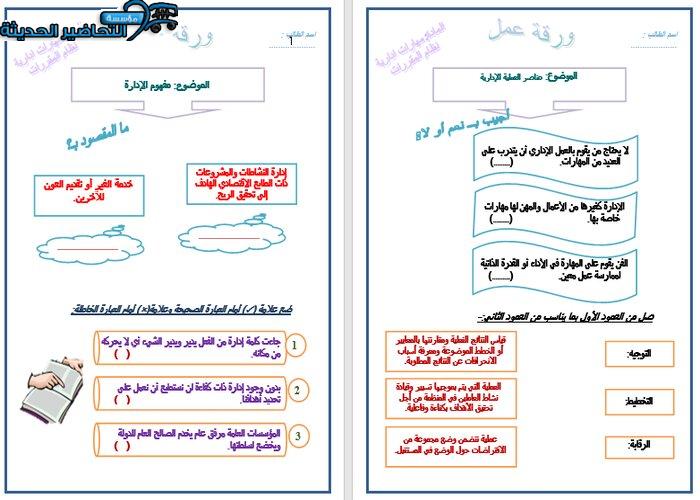 اسم الطالب :
ورقة عمل
المادة مهارات ادارية
نظام المقررات
الموضوع: عناصر العملية الإدارية
أجيب بــ نعم أو لا؟
لا يحتاج من يقوم بالعمل الإداري أن يتدرب على
العديد من المهارات. (.......)
الإدارة كغيرها من الأعمال والمهن لها مهارات
خاصة بها. (.......)
الفن يقوم على المهارة في الأداء أو القدرة الذاتية
لممارسة عمل معين. (.......)
صل من العمود الأول بما يناسب من العمود الثاني:-
التوجيه:
قياس النتائج الفعلية ومقارنتها بالمعايير
أو الخطط الموضوعة ومعرفة أسباب
الانحرافات عن النتائج المطلوبة.
التخطيط:
العملية التي يتم بموجبها تسيير وقيادة
نشاط العاملين في المنظمة من أجل
تحقيق الأهداف بكفاءة وفاعلية.
الرقابة:
عملية تتضمن وضع مجموعة من
الافتراضات حول الوضع في المستقبل.
اسم الطالب :
ورقة
مهارات ادارية
نظام المقررات
مؤسسة
التحاضير الحديثة
الموضوع: مفهوم الإدارة
ما المقصود بـ؟
إدارة النشاطات والمشروعات
ذات الطابع الاقتصادي الهادف
إلى تحقيق الربح.
خدمة الغير أو تقديم العون
للآخرين.
ضع علامة (✓) أمام العبارة الصحيحة وعلامة(×) أمام العبارة الخاطئة:
1
جاءت كلمة إدارة من الفعل يدير ويدير الشيء أي لا يحركه
من مكانه. ( )
2
بدون وجود إدارة ذات كفاءة لن نستطيع أن نعمل على
تحديد أهدافنا. ( )
3
المؤسسات العامة مرفق عام يخدم الصالح العام للدولة
ويخضع لسلطاتها. ( )